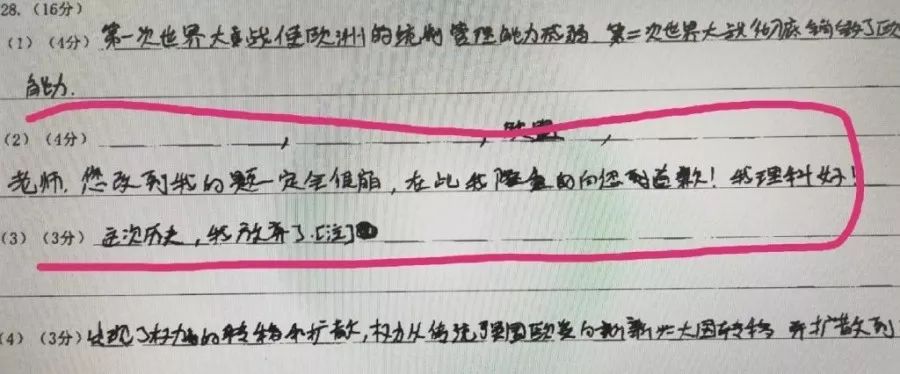 28. (16分)
(1) (4分) 第一次世界大战使欧洲的统制管理能力减弱 第二次世界大战彻底销毁了欧
能力.
(2) (4分) , , ,
老师. 您改到我的题一定全很崩, 在此我隆重的向您致道歉! 我理科好!
(3) (3分) 这次历史, 我放弃了.[泣]
(4) (3分) 出现了权力的转移和扩散, 权力从传统 欧美向新 大国转移 并扩散到